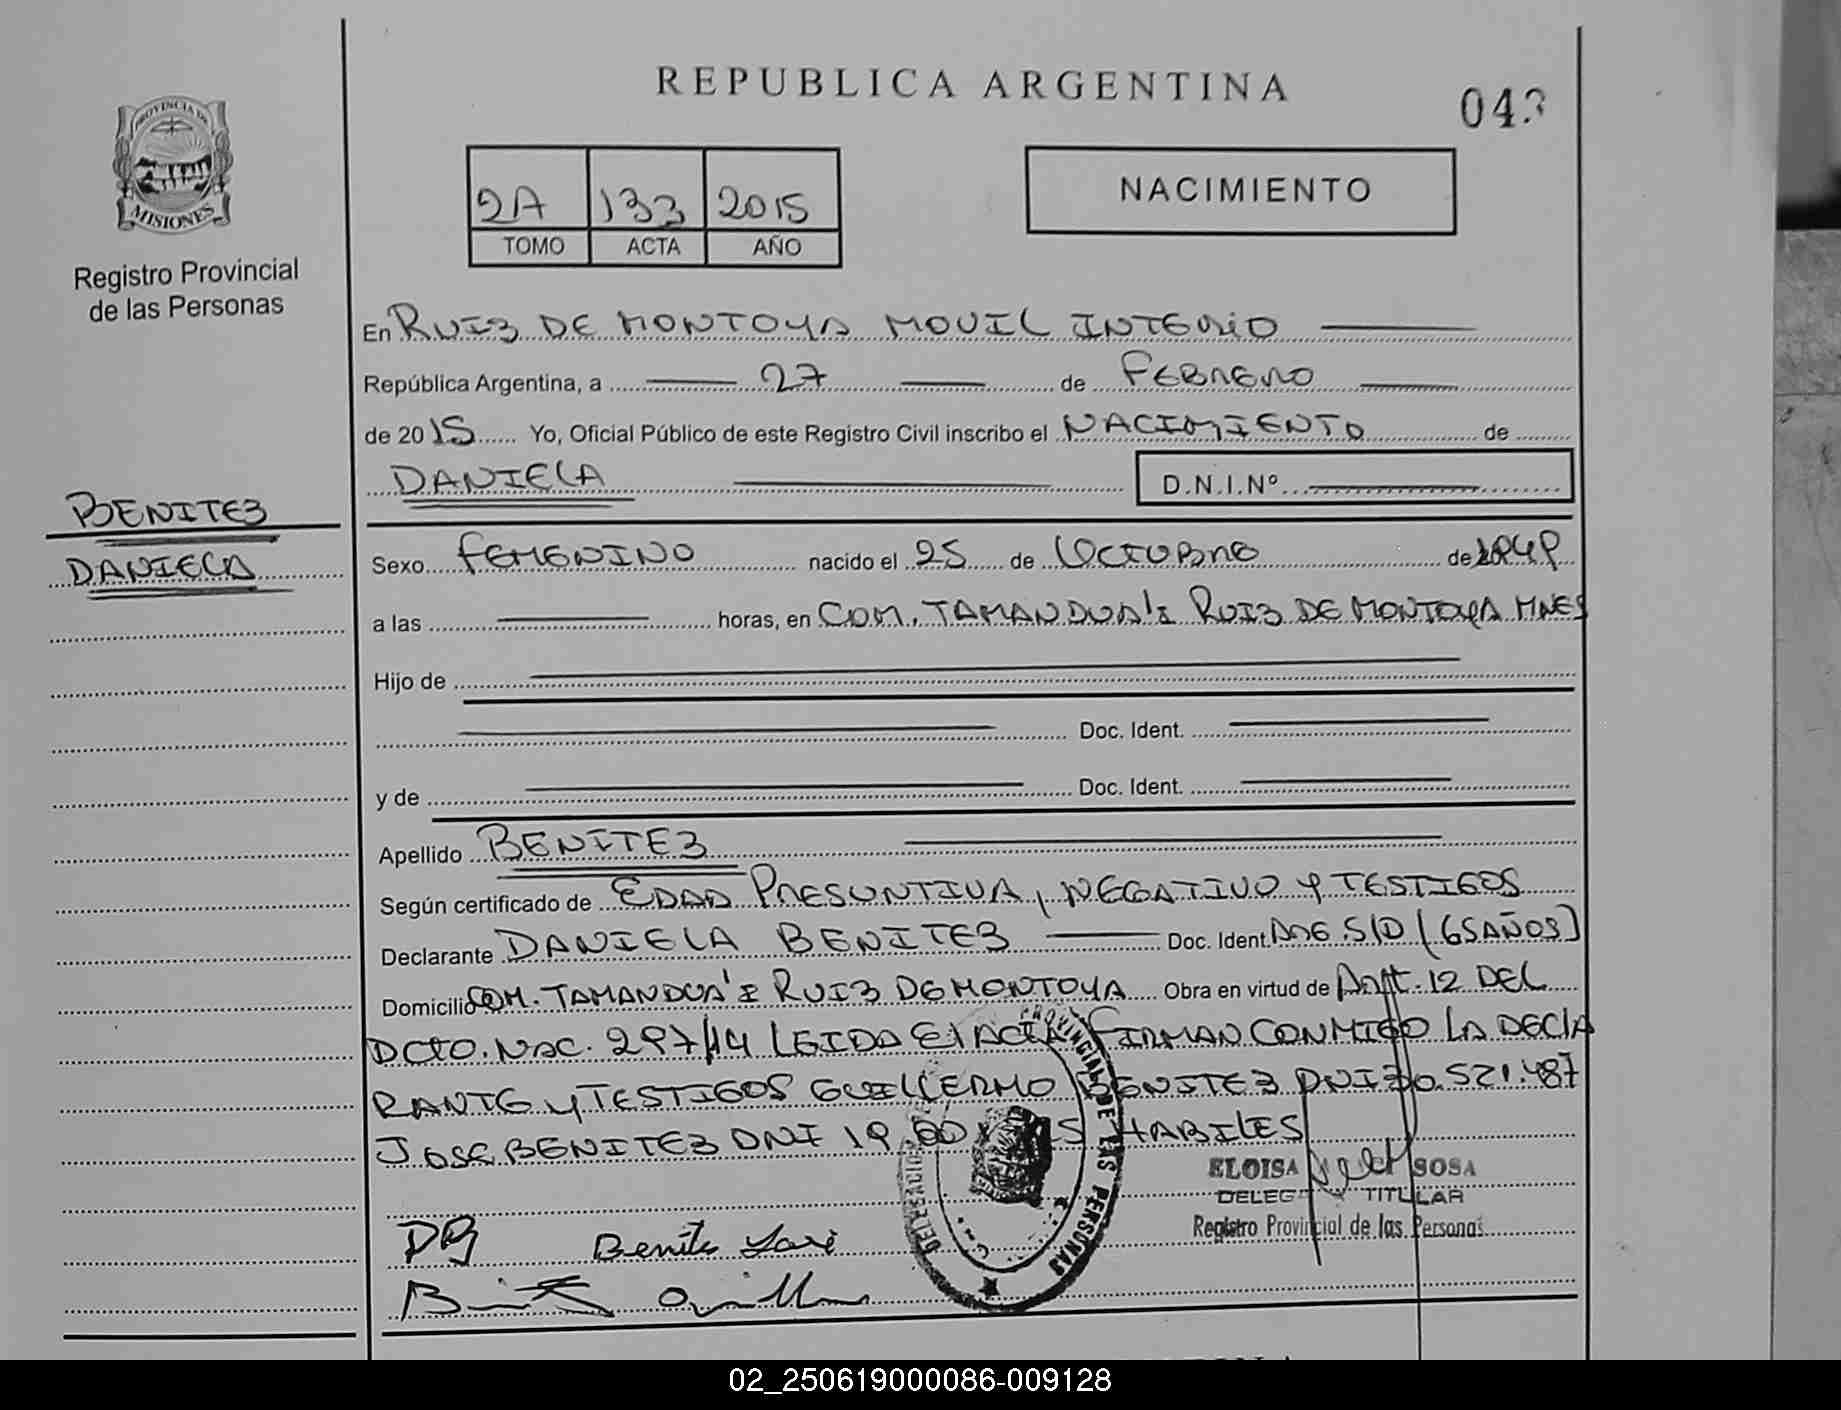 REPUBLICA ARGENTINA
04
PROVINCIA DE
MISIONES
Registro Provincial
de las Personas
2A 133 2015
TOMO ACTA AÑO
NACIMIENTO
En RUIZ DE MONTOYA MOVIL INTERIO
República Argentina, a 27 de FEBRERO
de 2015 Yo, Oficial Público de este Registro Civil inscribo el NACIMIENTO de
DANIELA D.N.I.Nº
BENITEZ
DANIELA
Sexo FEMENINO nacido el 25 de OCTUBRE de 1949
a las horas, en COM. TAMANDUA'I RUIZ DE MONTOYA MNES
Hijo de
Doc. Ident.
y de Doc. Ident.
Apellido BENITEZ
Según certificado de EDAD PRESUNTIVA, NEGATIVO Y TESTIGOS
Declarante DANIELA BENITEZ Doc. Ident. ARG. S/D (65 AÑOS)
Domicilio COM. TAMANDUA'I RUIZ DE MONTOYA Obra en virtud de Art. 12 DEL
DCTO. NAC. 297/14 LEIDA El ACTA FIRMAN CONMIGO LA DECLA
RANTE Y TESTIGOS GUILLERMO BENITEZ DNI 30.521.487
JOSE BENITEZ DNI 19 HABILES
PROVINCIAL DE LAS PERSONAS
ELOISA SOSA
TITULAR
Registro Provincial de las Personas
DB Benite José
02_250619000086-009128